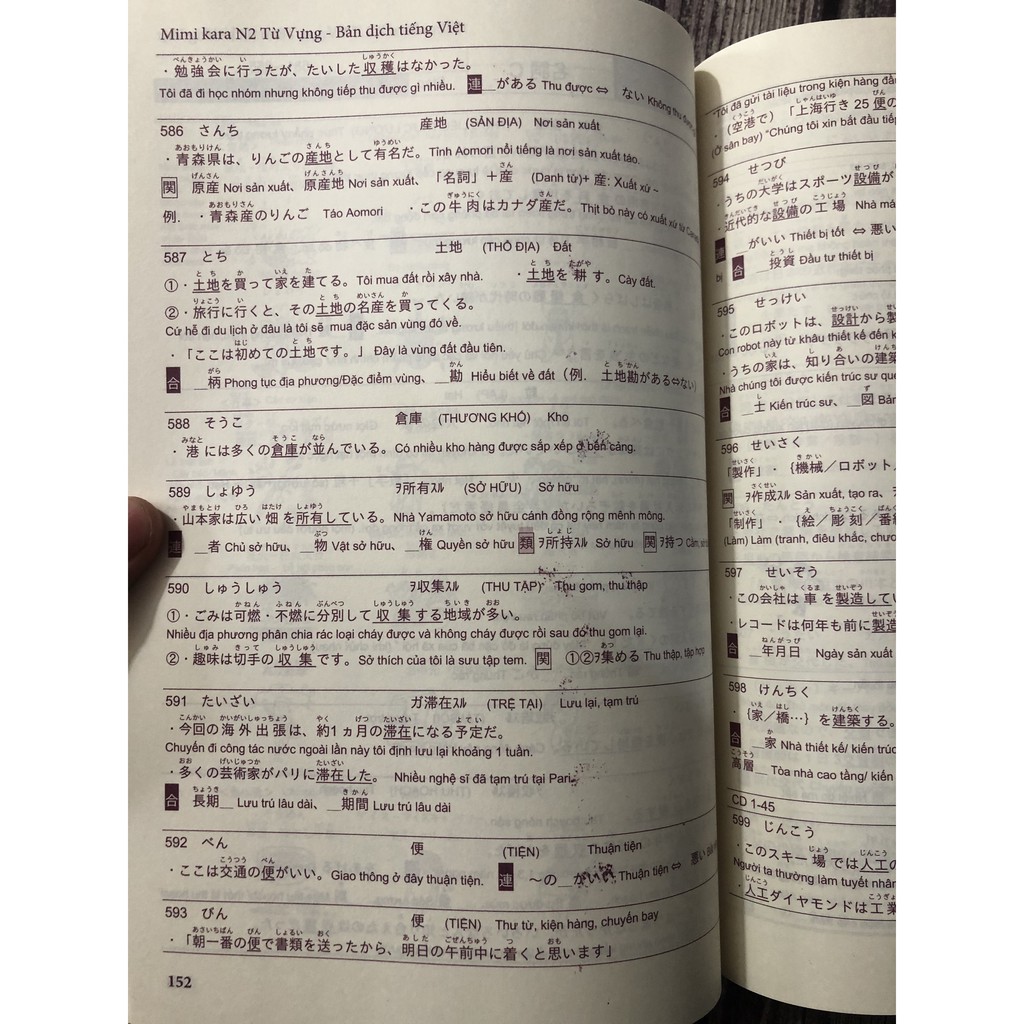 Mimi kara N2 Từ Vựng - Bản dịch tiếng Việt
べんきょうかい い しゅうかく
・勉強会に行ったが、たいした収穫はなかった。
Tôi đã đi học nhóm nhưng không tiếp thu được gì nhiều. 連 __がある Thu được ⇔ ない Không thu được
586 さんち 産地 (SẢN ĐỊA) Nơi sản xuất
あおもりけん さんち ゆうめい
・青森県は、りんごの産地として有名だ。Tỉnh Aomori nổi tiếng là nơi sản xuất táo.
げんさん げんさんち さん
関 原産 Nơi sản xuất、原産地 Nơi sản xuất、「名詞」＋産 (Danh từ)+ 産: Xuất xứ ~
あおもりさん ぎゅうにく さん
例. ・青森産のりんご Táo Aomori ・この牛肉はカナダ産だ。Thịt bò này có xuất xứ từ
587 とち 土地 (THỔ ĐỊA) Đất
とち か いえ た とち たがや
①・土地を買って家を建てる。Tôi mua đất rồi xây nhà. ・土地を耕す。Cày đất.
りょこう い とち めいさん か
②・旅行に行くと、その土地の名産を買ってくる。
Cứ hễ đi du lịch ở đâu là tôi sẽ mua đặc sản vùng đó về.
はじ とち
・「ここは初めての土地です。」 Đây là vùng đất đầu tiên.
がら かん とちかん
合 __柄 Phong tục địa phương/Đặc điểm vùng、__勘 Hiểu biết về đất (例. 土地勘がある⇔ない)
588 そうこ 倉庫 (THƯƠNG KHỐ) Kho
みなと そうこ なら
・港には多くの倉庫が並んでいる。Có nhiều kho hàng được sắp xếp ở bến cảng.
589 しょゆう ヲ所有ｽﾙ (SỞ HỮU) Sở hữu
やまもとけ ひろ はたけ しょゆう
・山本家は広い畑を所有している。Nhà Yamamoto sở hữu cánh đồng rộng mênh mông.
しゃ ぶつ けん しょじ
連 __者 Chủ sở hữu、__物 Vật sở hữu、__権 Quyền sở hữu 類 ヲ所持ｽﾙ Sở hữu 関 ヲ持つ Cầm,
590 しゅうしゅう ヲ収集ｽﾙ (THU TẬP) Thu gom, thu thập
かねん ふねん ぶんべつ しゅうしゅう ちいき おお
①・ごみは可燃・不燃に分別して収集する地域が多い。
Nhiều địa phương phân chia rác loại cháy được và không cháy được rồi sau đó thu gom lại.
しゅみ きって しゅうしゅう あつ
②・趣味は切手の収集です。Sở thích của tôi là sưu tập tem. 関 ①②ヲ集める Thu thập, tập hợp
591 たいざい ガ滞在ｽﾙ (TRỆ TẠI) Lưu lại, tạm trú
こんかい かいがいしゅっちょう やく げつ たいざい よてい
・今回の海外出張は、約1ヵ月の滞在になる予定だ。
Chuyến đi công tác nước ngoài lần này tôi định lưu lại khoảng 1 tuần.
おお げいじゅつか たいざい
・多くの芸術家がパリに滞在した。 Nhiều nghệ sĩ đã tạm trú tại Pari.
ちょうき きかん
合 長期__ Lưu trú lâu dài、__期間 Lưu trú lâu dài
592 べん 便 (TIỆN) Thuận tiện
こうつう べん
・ここは交通の便がいい。Giao thông ở đây thuận tiện. 連 ～の__がいい Thuận tiện ⇔ 悪い
593 びん 便 (TIỆN) Thư từ, kiện hàng, chuyến bay
あさいちばん びん しょるい おく あした ごぜんちゅう つ おも
・「朝一番の便で書類を送ったから、明日の午前中に着くと思います」
152
"Tôi đã gửi tài liệu trong kiện hàng đầu
くうこう しゃんはいゆ びん
・(空港で) 「上海行き 25 便の
(Ở sân bay) "Chúng tôi xin bắt đầu tiếp
594 せつび
だいがく せつび
・うちの大学はスポーツ設備が
きんだいてき せつび こうじょう
・近代的な設備の工場 Nhà má
連 __がいい Thiết bị tốt ⇔ 悪い
とうし
bị 合 __投資 Đầu tư thiết bị
595 せっけい
せっけい
・このロボットは、設計から製
Con robot này từ khâu thiết kế đến k
いえ し あ けんち
・うちの家は、知り合いの建築
Nhà chúng tôi được kiến trúc sư que
し ず
合 __士 Kiến trúc sư、__図 Bản
596 せいさく
せいさく きかい
「製作」・ {機械／ロボット
さくせい
関 ヲ作成ｽﾙ Sản xuất, tạo ra、
せいさく え ちょうこく ばん
「制作」・ {絵／彫刻／番組
(Làm) Làm (tranh, điêu khắc, chươ
597 せいぞう
かいしゃ くるま せいぞう
・この会社は車を製造してい
・レコードは何年も前に製造
ねんがっぴ
合 __年月日 Ngày sản xuất
598 けんちく
いえ はし けんちく
・{家／橋…} を建築する。
か
合 __家 Nhà thiết kế/ kiến trúc
こうそう
高層__ Tòa nhà cao tầng/ kiến
CD 1-45
599 じんこう
じょう じんこう
・このスキー場では人工の
Người ta thường làm tuyết nhân
じんこう こうぎょ
・人工ダイヤモンドは工業